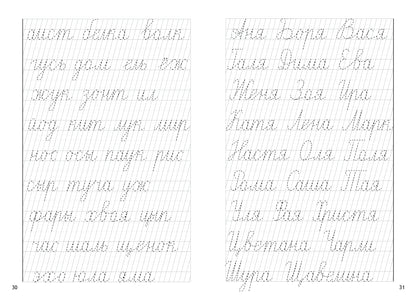 аист белка волк
гусь дом ель ёж
жук зонт ил
йод кит лук мир
нос осы паук рис
сыр туча уж
фары хвоя цып
час шаль щенок
эхо юла яма
30
Аня Боря Вася
Галя Дима Ева
Женя Зоя Ира
Катя Лена Марк
Настя Оля Поля
Рома Саша Тая
Уля Фая Христя
Цветана Чарли
Шура Щавелина
31